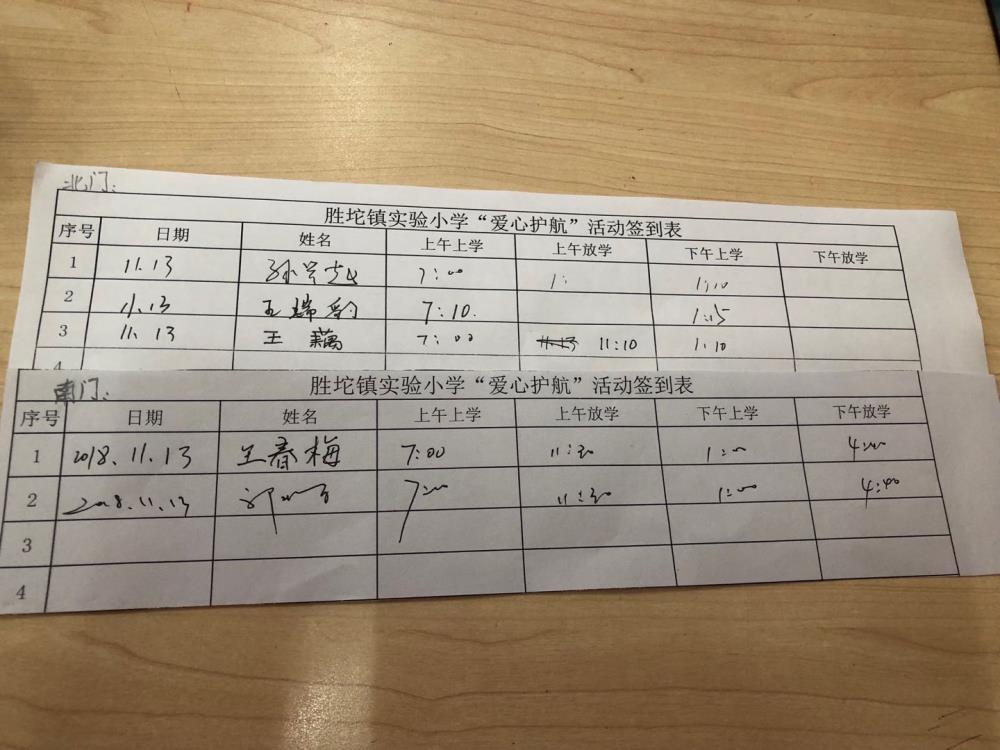 北门:
胜坨镇实验小学“爱心护航”活动签到表
序号 日期 姓名 上午上学 上午放学 下午上学 下午放学
1 11.13 7:00 1: 1:10
2 11.13 王瑞 7:10. 1:15
3 11.13 王 7:00 11:10 1:10
4
南门:
胜坨镇实验小学“爱心护航”活动签到表
序号 日期 姓名 上午上学 上午放学 下午上学 下午放学
1 2018.11.13 王春梅 7:00 11:30 1:00 4:40
2 2018.11.13 7:00 11:30 1:00 4:40
3
4